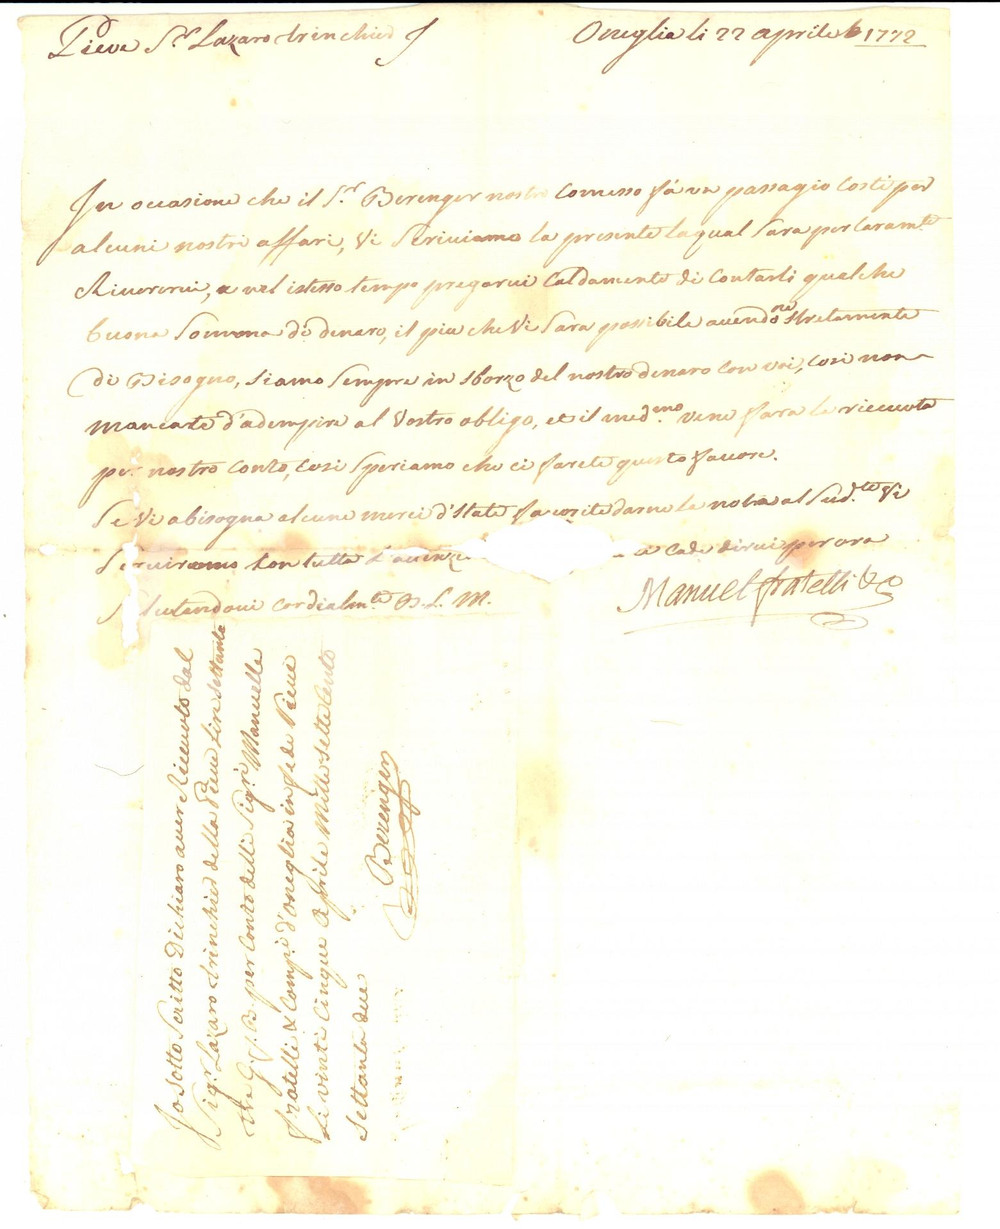 Pieve Sr. Lazaro trinchied
Oneglia li 22 aprile 1772
In occasione che il Sr. Berenger nostro Comesso fà va passagio Costi per
alcuni nostri affari, Vi Scriviamo la presente la qual Sara per Caramte
Riverirvi, e nel istesso tempo pregarvi Caldamente di Contarli qualche
buona Somma di denaro, il piu che Vi Sara possibile avendone Stretamente
di Bisogno, siamo Sempre in sborzo del nostro denaro Con voi, Cosi non
mancate d'adempire al Vostro obligo, et il medmo. vene fara le riceuta
per nostro Conto, Cosi Speriamo che ci farete questo favore.
Se Vi abisogna alcune merci d'State favorite darne la nota al Sudte Vi
Serviremo Con tutta l'atenz Cade dirvi per ora
Salutandovi cordialmte B. L. M.
Manuel fratelli & Co
Io Sotto Scritto Dichiaro aver Riceuto dal
Sigr Lazaro trinchied della Pieve Lire settanta
tre G. f. B. per Conto delli Sigri Manuelle
fratelli & Compi. d'oneglia in fede Pieve
Li vinti Cinque Aprile Mille Sette Cento
Settanta due
Berenger